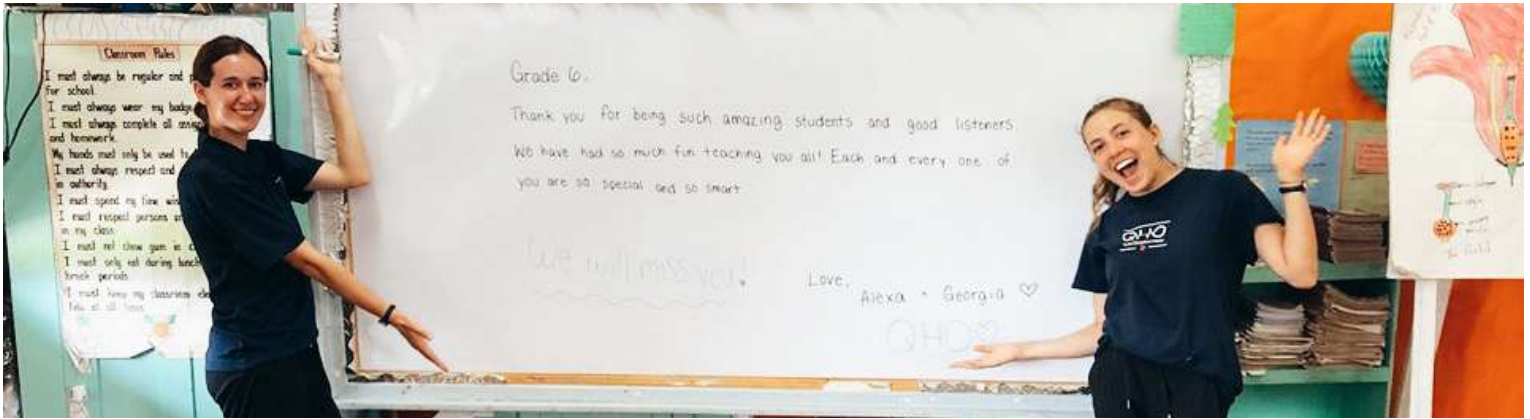 Classroom Rules
I must always be regular and
for school.
I must always wear my badge
I must always complete all
and homework.
My hands must only be used to
I must always respect and
in authority.
I must spend my time
I must respect persons
in my class.
I must not chew gum in
I must only eat during lunch
break periods.
I must keep my classroom
at all times.
Grade 6.
Thank you for being such amazing students and good listeners
We have had so much fun teaching you all! Each and every one of
you are so special and so smart
We will miss you!
Love,
Alexa + Georgia ♡
QHO♡
QHO